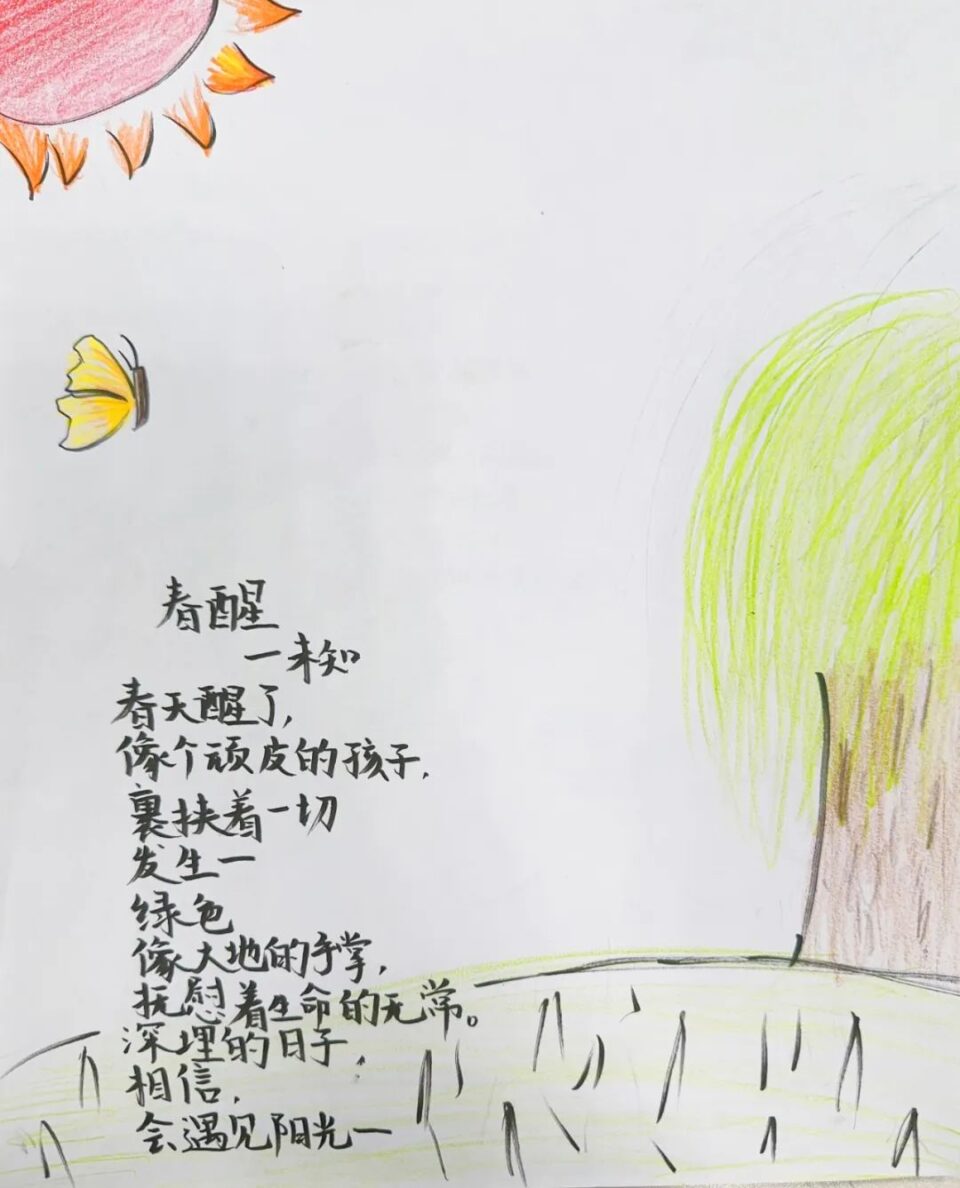 春醒
一未知
春天醒了,
像个顽皮的孩子,
裹挟着一切
发生一
绿色
像大地的手掌,
抚慰着生命的无常。
深埋的日子,
相信,
会遇见阳光一